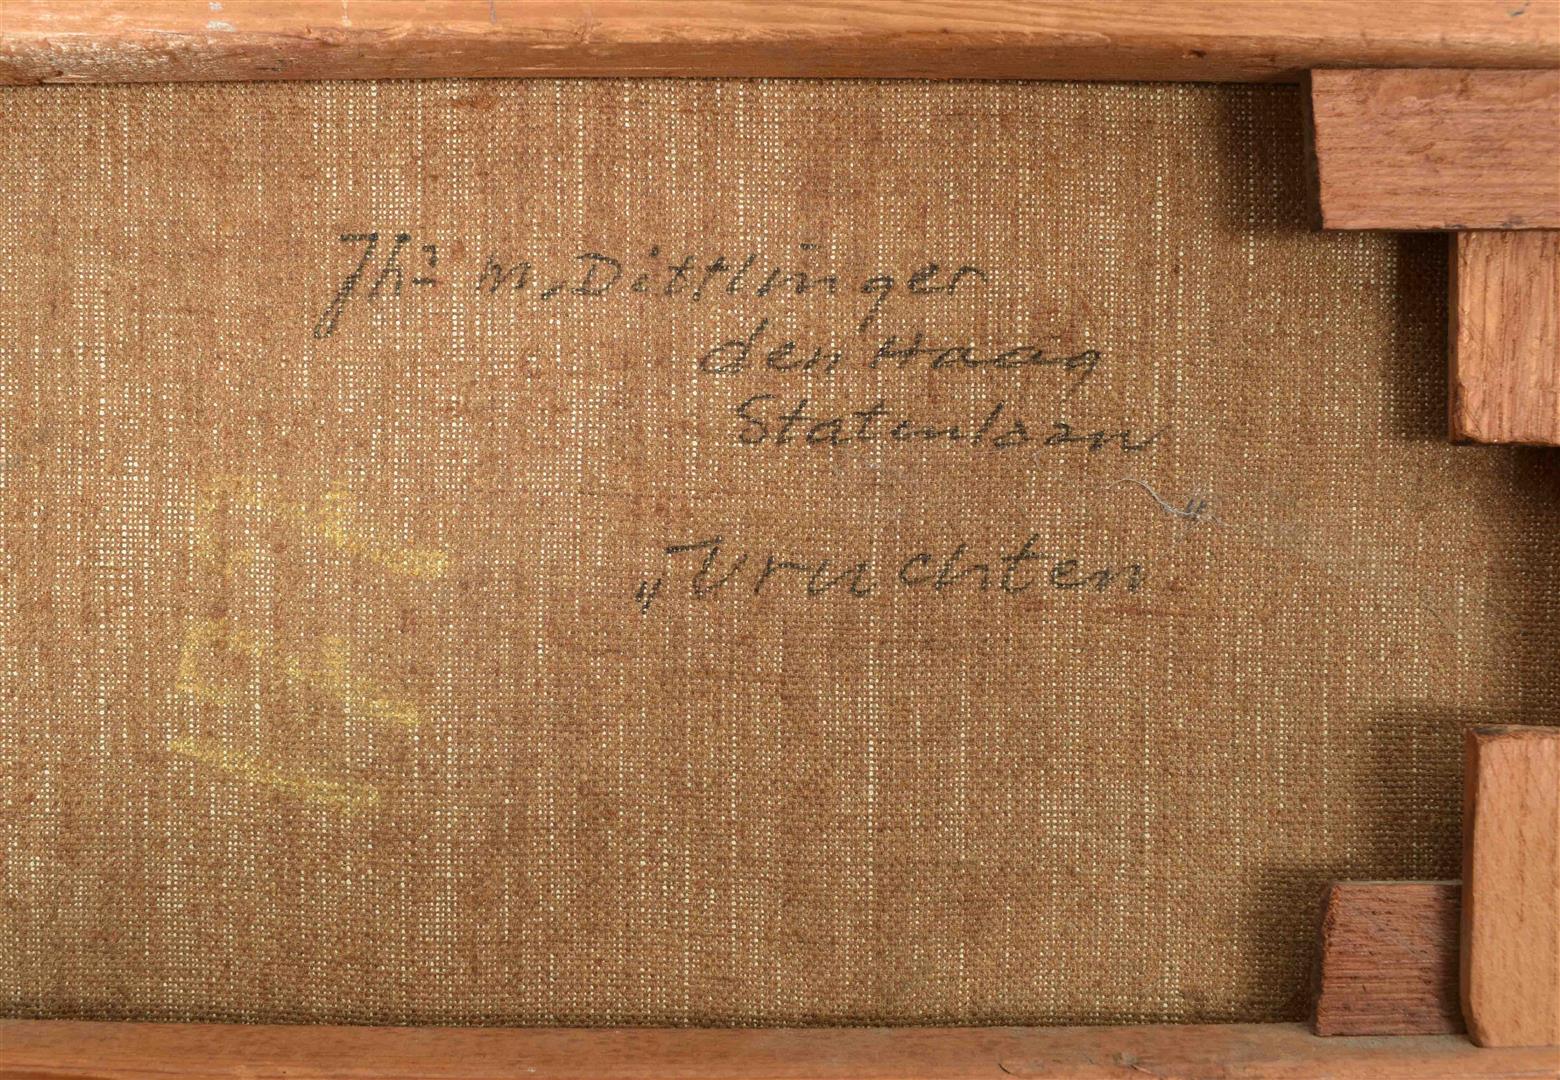 Jhs M. Dittlinger
den Haag
Statenlaan
„Vruchten"